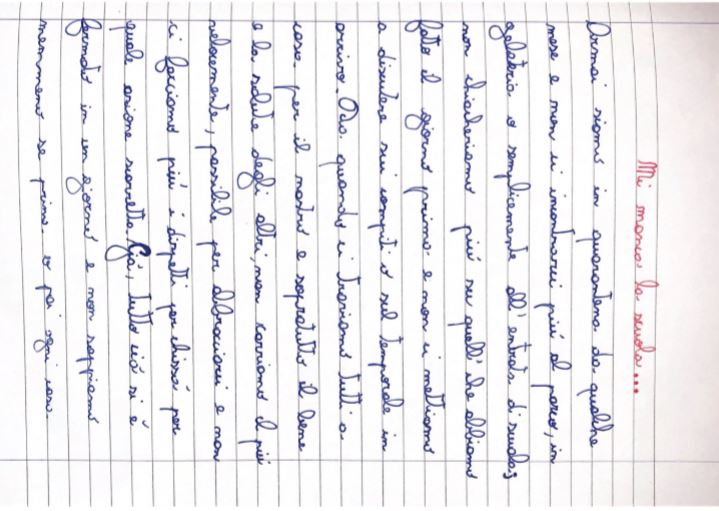 Mi manca la scuola...
Ormai siamo in quarantena da qualche
mese e non ci incontriamo più al parco, in
gelateria o semplicemente all'entrata di scuola;
non chiacheriamo più su quell che abbiamo
fatto il giorno prima e non ci mettiamo
a discutere sui compiti o sul temporale in
arrivo. Ora quando ci troviamo tutti a
casa per il nostro e sopratutto il bene
e la salute degli altri, non corriamo il più
velocemente, possibile per abbracciarci e non
ci facciamo più i dispetti per chissà per
quale azione scorretta. Già, tutto ciò si è
fermato in un giorno e non sappiamo
nemmeno se prima o poi ogni cosa